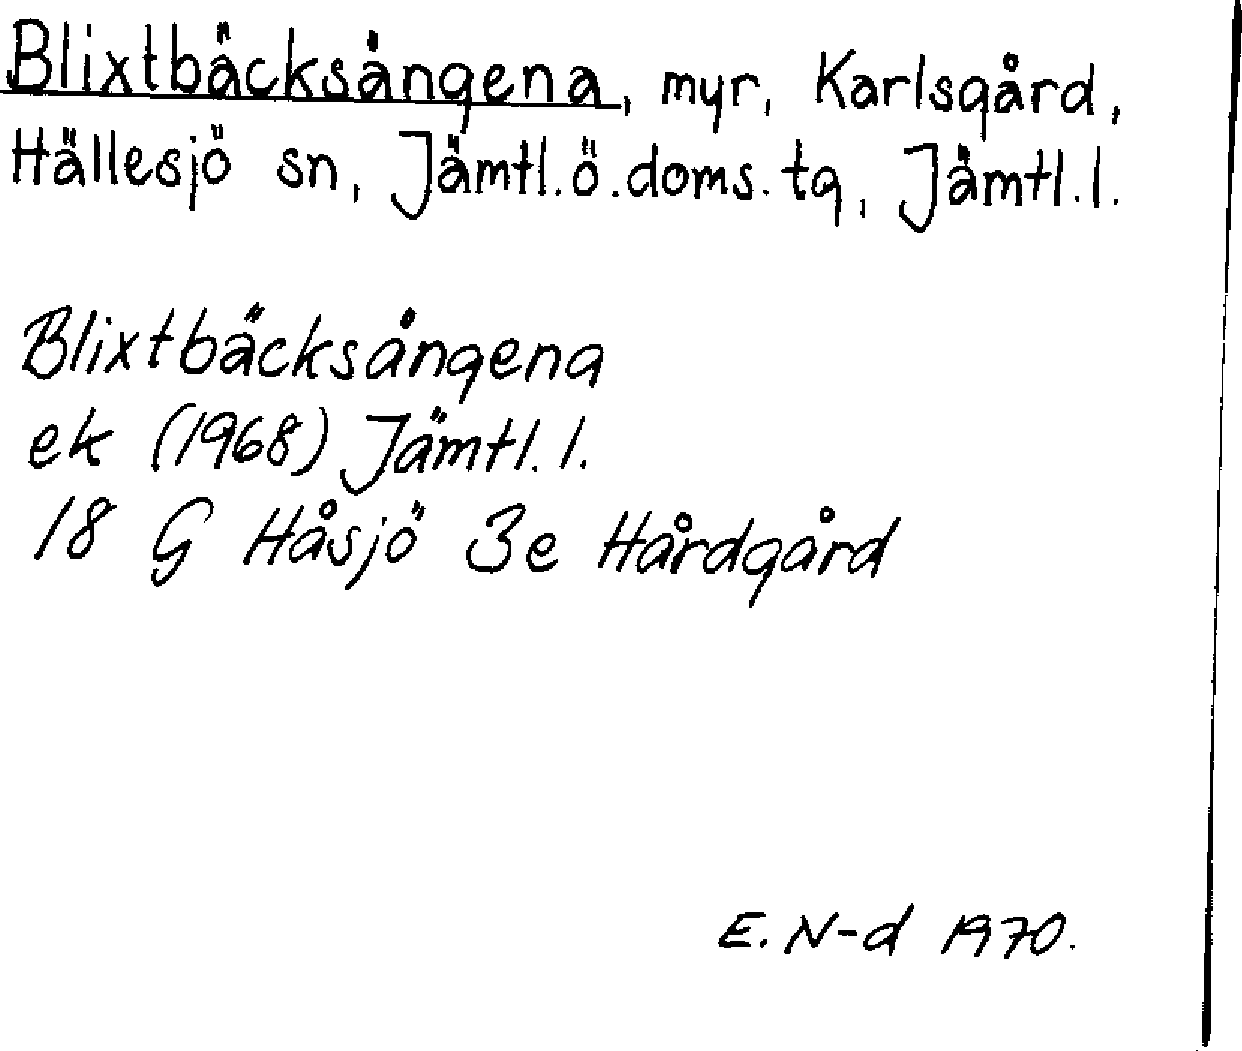 Blixtbäcksångena, myr, Karlsgård,
Hällesjö sn, Jämtl.ö.doms.tg, Jämtl.l.
Blixtbäcksångena
ek (1968) Jämtl.l.
18 G Håsjö 3e Hårdgård
E. N-d 1970.